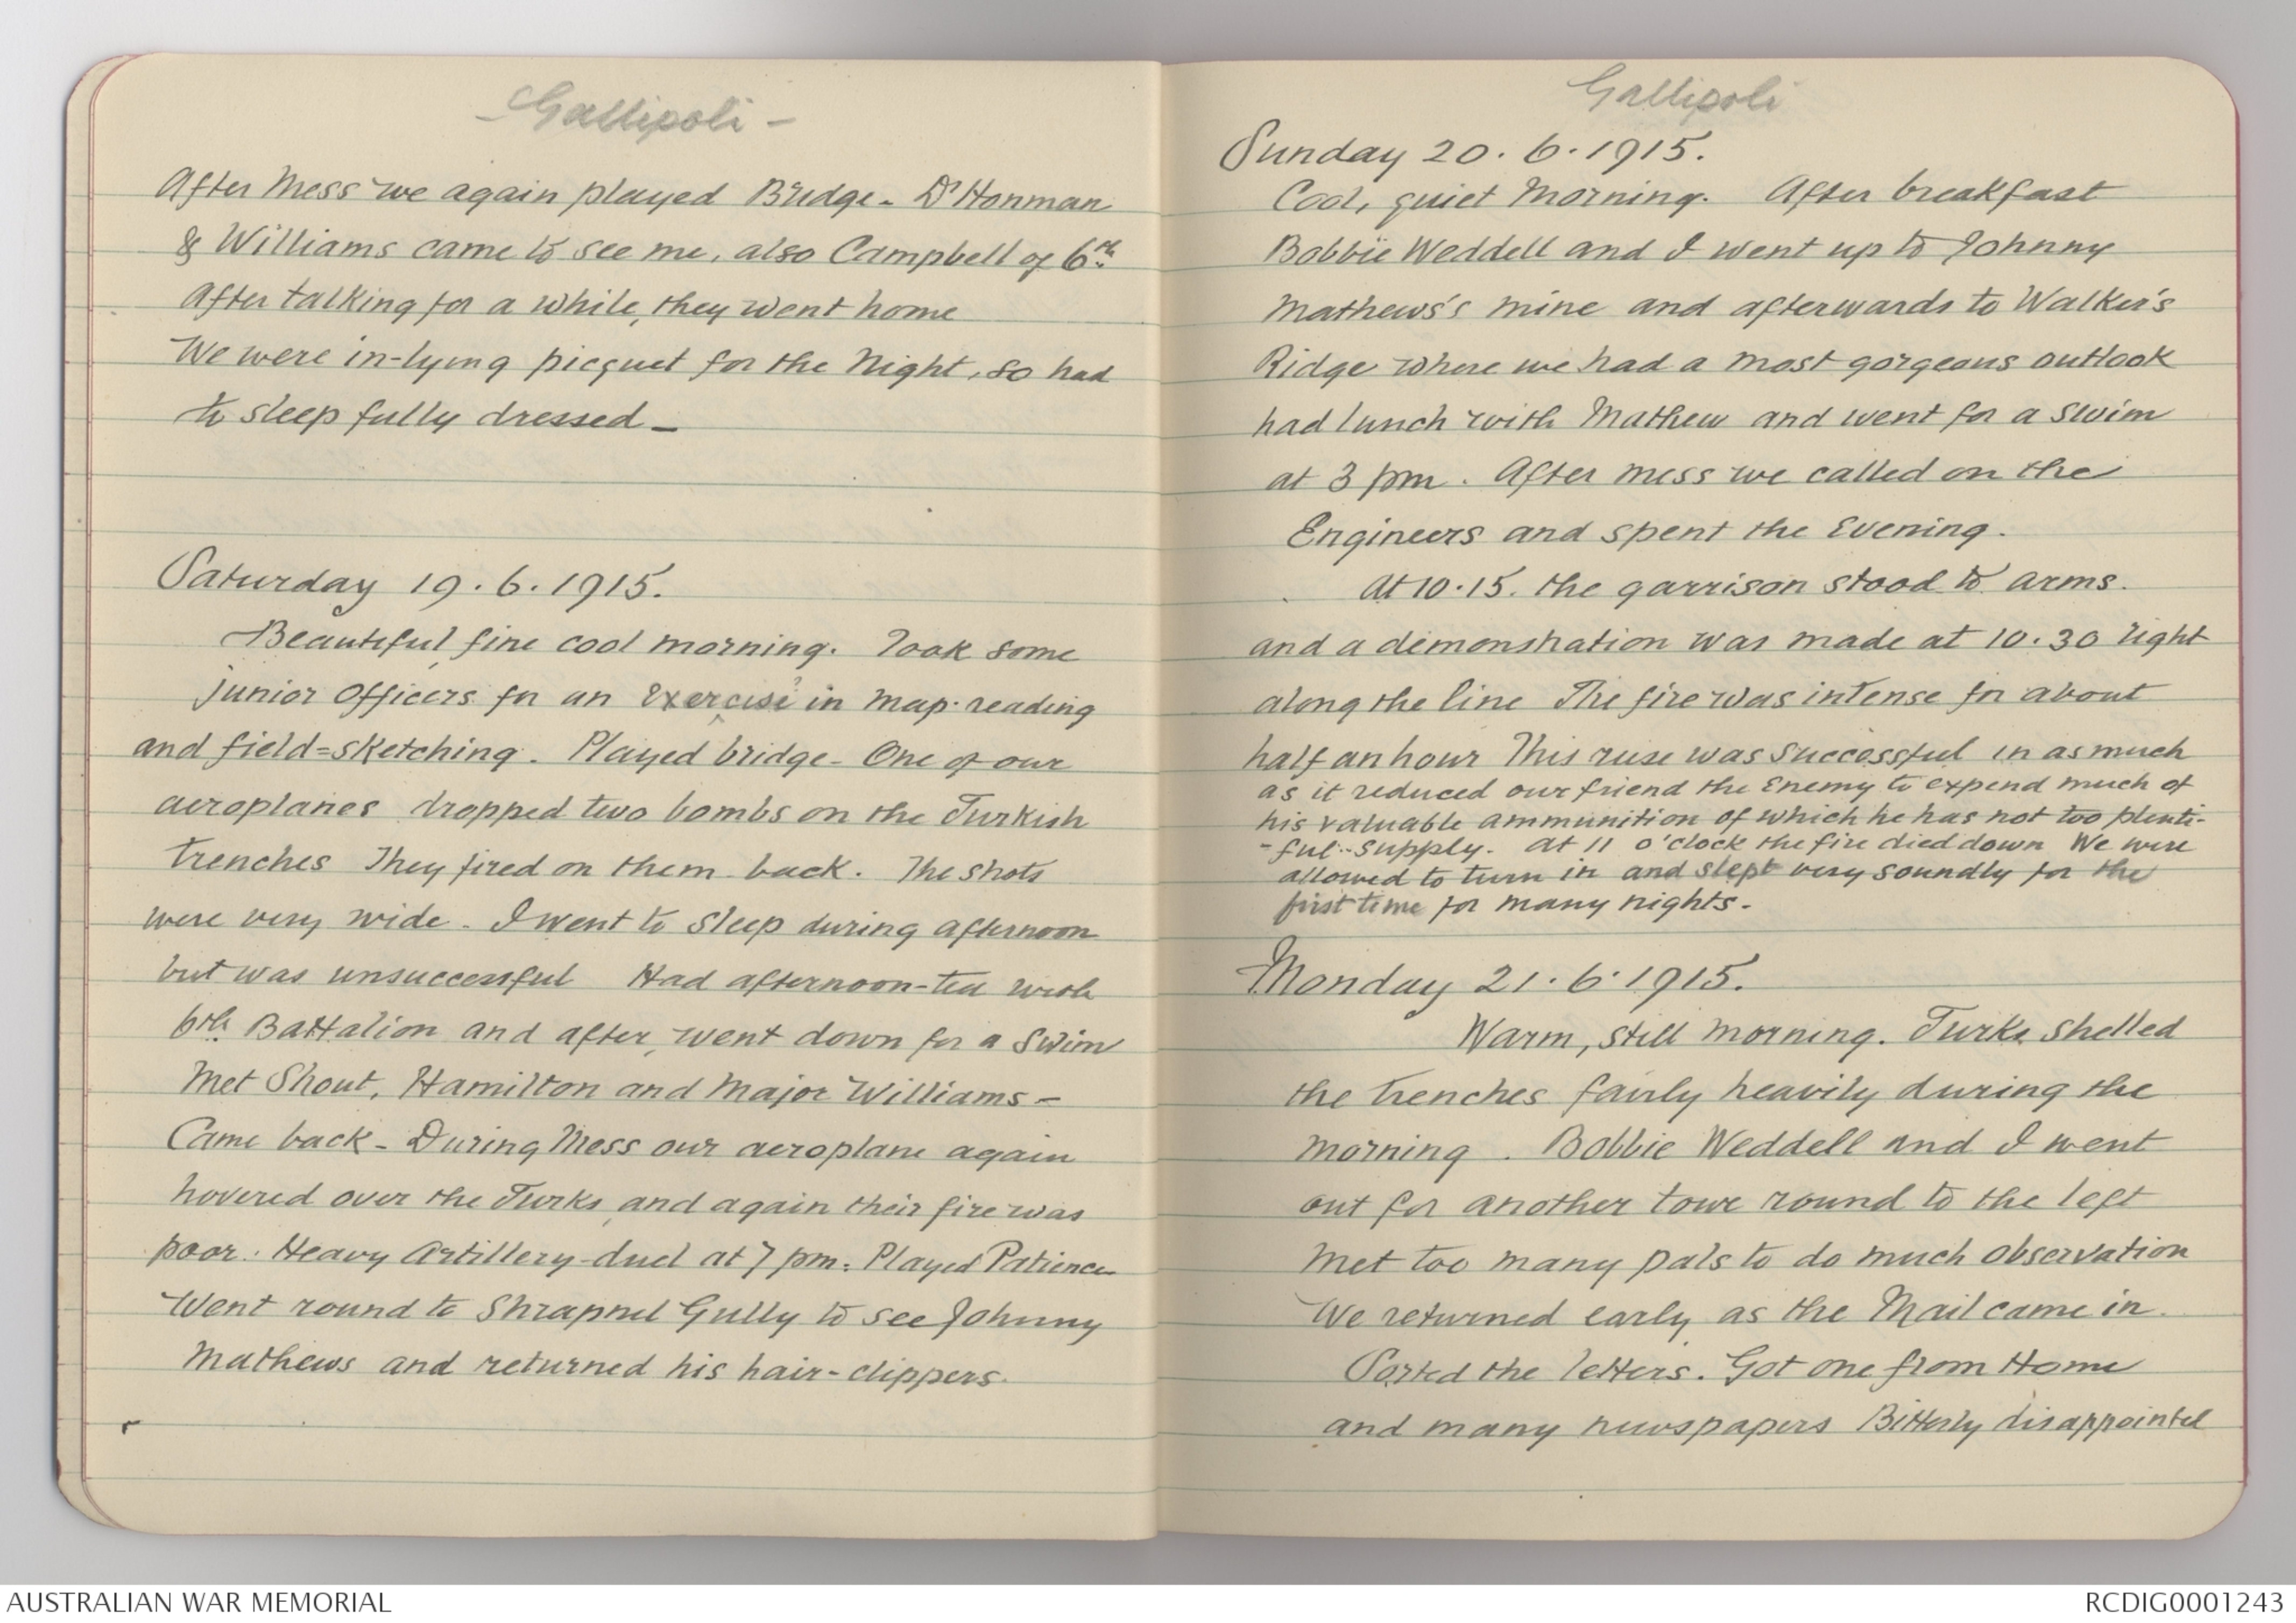 - Gallipoli -
After Mess we again played Bridge - Dr Honman
& Williams came to see me, also Campbell of 6th.
After talking for a while, they went home
We were in-lying picquet for the Night, so had
to sleep fully dressed -
Saturday 19.6.1915.
Beautiful, fine cool morning. Took some
junior Officers for an Exercise in map-reading
and field=sketching. Played bridge - One of our
aeroplanes dropped two bombs on the Turkish
Trenches They fired on them back. The shots
were very wide - I went to sleep during afternoon
but was unsuccessful Had afternoon-tea with
6th Battalion and after, went down for a swim
Met Shout, Hamilton and Major Williams -
Came back - During Mess our aeroplane again
hovered over the Turks, and again their fire was
poor. Heavy Artillery-duel at 7 pm. Played Patience
Went round to Shrapnel Gully to see Johnny
Mathews and returned his hair-clippers.
Gallipoli
Sunday 20.6.1915.
Cool, quiet Morning. After breakfast
Bobbie Weddell and I went up to Johnny
Mathews's mine and afterwards to Walker's
Ridge where we had a most gorgeous outlook
had lunch with Mathew and went for a swim
at 3 pm. After mess we called on the
Engineers and spent the Evening.
At 10.15. the garrison stood to arms.
and a demonstration was made at 10.30 right
along the line The fire was intense for about
half an hour This ruse was successful in as much
as it reduced our friend the Enemy to expend much of
his valuable ammunition of which he has not too plenti-
-ful-supply. At 11 o'clock the fire died down We were
allowed to turn in and slept very soundly for the
first time for many nights.
Monday 21.6.1915.
Warm, still morning. Turks shelled
the trenches fairly heavily during the
morning. Bobbie Weddell and I went
out for another tour round to the left
Met too many pals to do much observation
We returned early as the Mail came in.
Sorted the letters. Got one from Home
and many newspapers Bitterly disappointed
AUSTRALIAN WAR MEMORIAL
RCDIG0001243